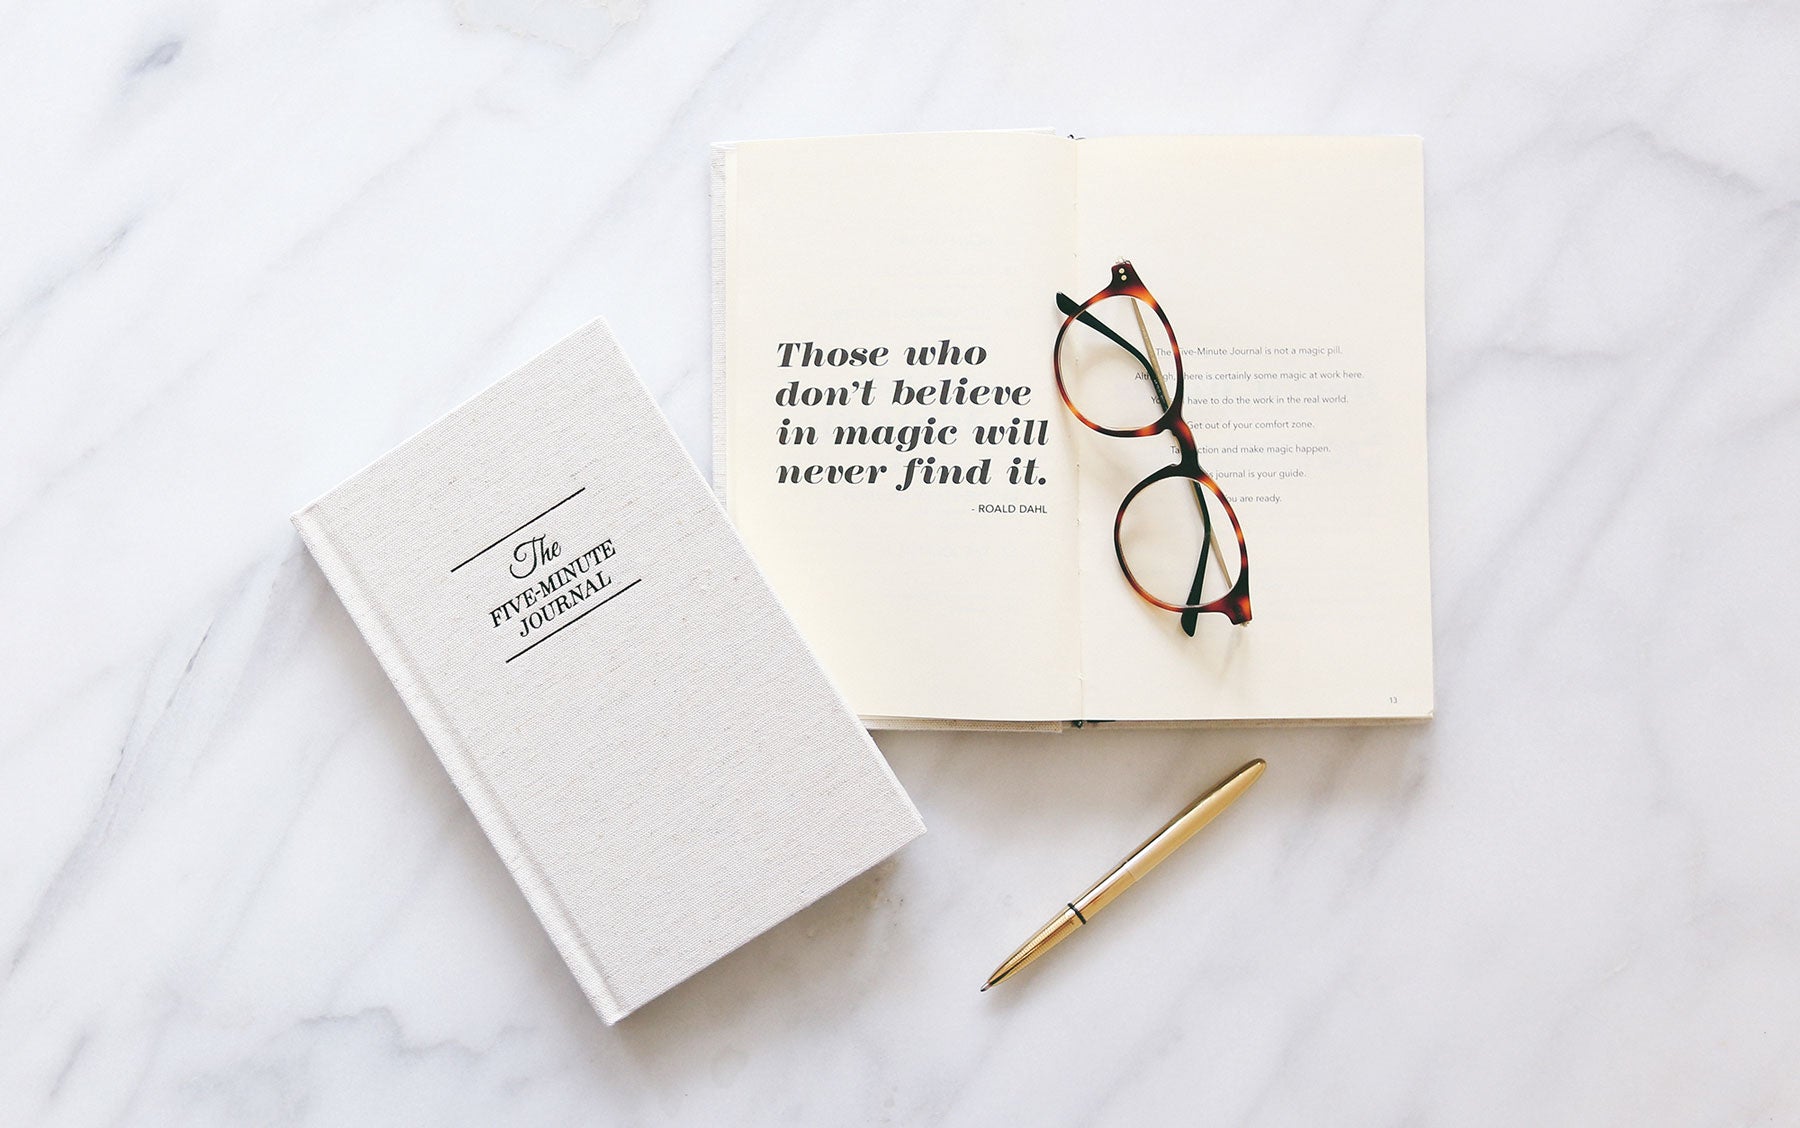 The
FIVE-MINUTE
JOURNAL
Those who
don't believe
in magic will
never find it.
- ROALD DAHL
The Five-Minute Journal is not a magic pill.
Although, there is certainly some magic at work here.
have to do the work in the real world.
Get out of your comfort zone.
action and make magic happen.
journal is your guide.
you are ready.
13